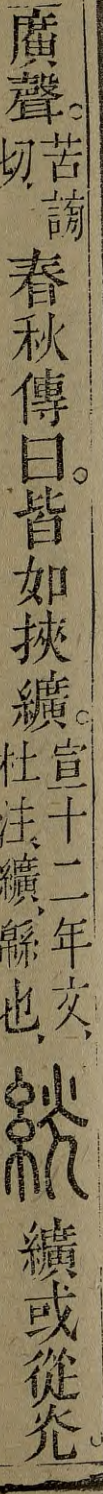 廣聲。苦謗切、春秋傳曰。皆如挾纊。宣十二年文、杜注、纊、緜也、絖纊或從光。